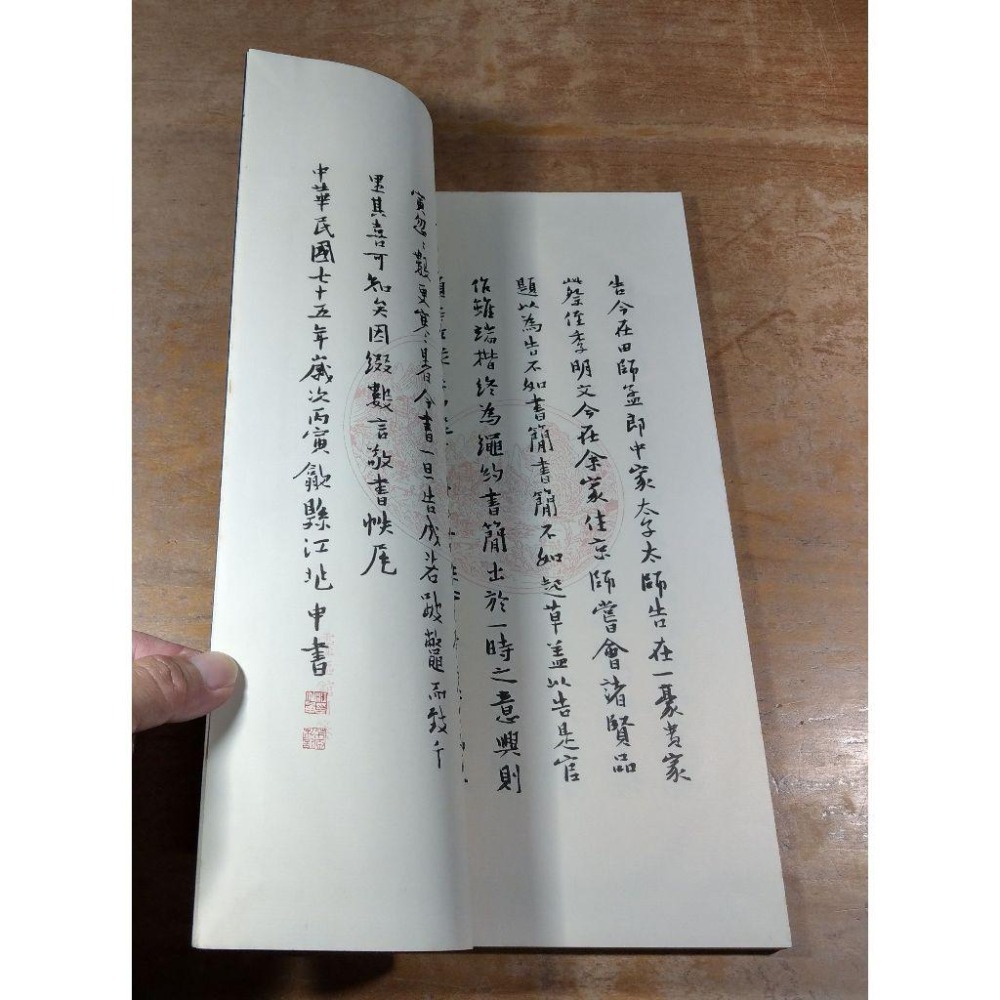 告今在田師孟郎中家太子太師告在一豪貴家
祭侄季明文今在余家住京師嘗會諸賢品
題以為告不如書簡書簡不如起草蓋以告是官
作雖端楷終為繩約書簡出於一時之意興則
寅忽〻數更寒〻暑今書一旦告成若跛鼈而致千
里其喜可知矣因綴數言敬書帙尾
中華民國七十五年歲次丙寅歙縣江兆申書